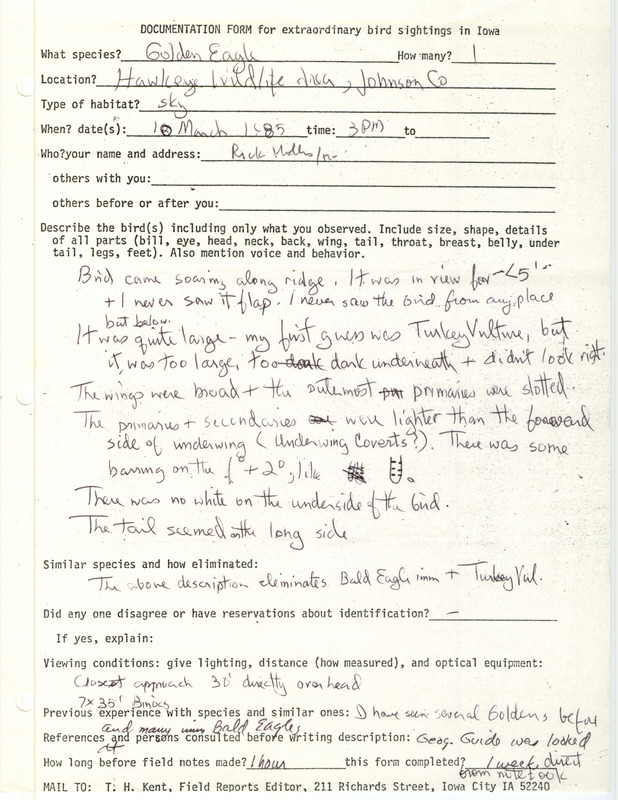 DOCUMENTATION FORM for extraordinary bird sightings in Iowa
What species? Golden Eagle How many? 1
Location? Hawkeye Wildlife Area, Johnson Co
Type of habitat? sky
When? date(s): 10 March 1985 time: 3PM to
Who?your name and address: Rick Hollis
others with you:
others before or after you:
Describe the bird(s) including only what you observed. Include size, shape, details
of all parts (bill, eye, head, neck, back, wing, tail, throat, breast, belly, under
tail, legs, feet). Also mention voice and behavior.
Bird came soaring along ridge. It was in view for ~<5'
+ I never saw it flap. I never saw the bird from any place
but below.
It was quite large - my first guess was Turkey Vulture, but
it was too large, too dark underneath + didn't look right.
The wings were broad + the outermost primaries were slotted.
The primaries + secondaries were lighter than the foreward
side of underwing (Underwing Coverts?). There was some
barring on the 1° + 2°, like
There was no white on the underside of the bird.
The tail seemed on the long side
Similar species and how eliminated:
The above description eliminates Bald Eagle imm + Turkey Vul.
Did any one disagree or have reservations about identification? —
If yes, explain:
Viewing conditions: give lighting, distance (how measured), and optical equipment:
Closest approach 30' directly overhead
7x35' Binocs
Previous experience with species and similar ones: I have seen several Goldens before
and many imm Bald Eagles
References and persons consulted before writing description: Geog. Guide was looked
at
How long before field notes made? 1 hour this form completed? 1 week, direct
from notebook
MAIL TO: T. H. Kent, Field Reports Editor, 211 Richards Street, Iowa City IA 52240